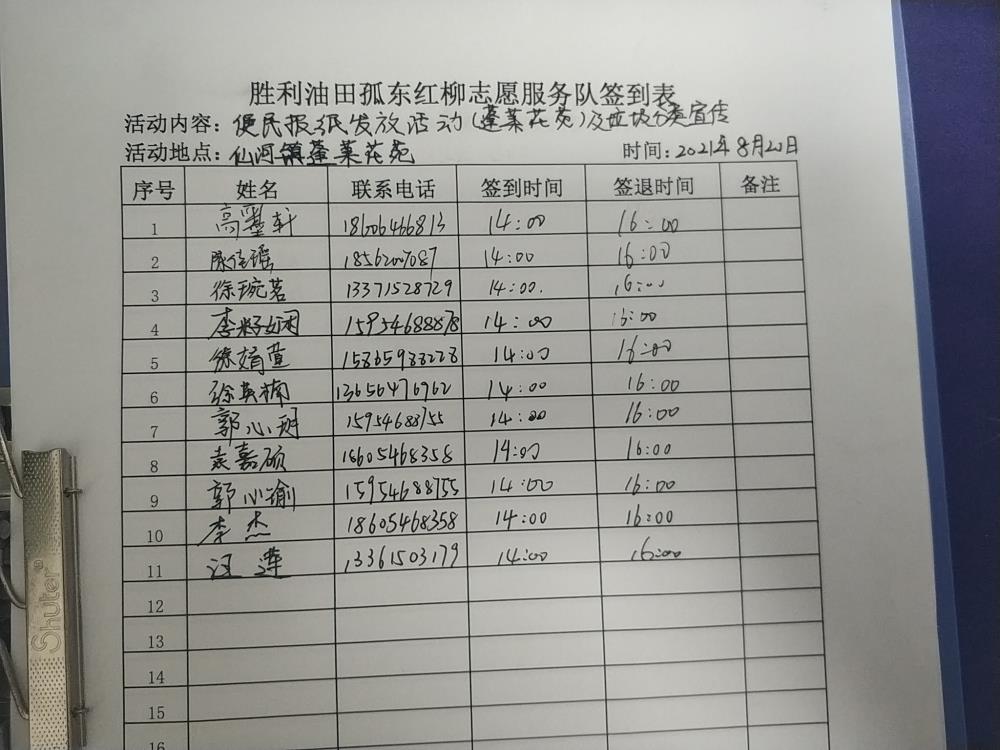 胜利油田孤东红柳志愿服务队签到表
活动内容：便民报纸发放活动(蓬莱花苑)及垃圾分类宣传
活动地点：仙河镇蓬莱花苑 时间：2021年8月20日
序号 姓名 联系电话 签到时间 签退时间 备注
1 高墨轩 18606466813 14:00 16:00
2 陈佳瑶 18562007087 14:00 16:00
3 徐琬茗 13371528729 14:00. 16:00
4 李籽娴 15954688878 14:00 16:00
5 徐婧萱 15865988228 14:00 16:00
6 徐英楠 13656476962 14:00 16:00
7 郭心玥 15954688755 14:00 16:00
8 袁嘉硕 18605468358 14:00 16:00
9 郭心瑜 15954688755 14:00 16:00
10 李杰 18605468358 14:00 16:00
11 汪莲 13361503179 14:00 16:00
12
13
14
15
16
Shuter®